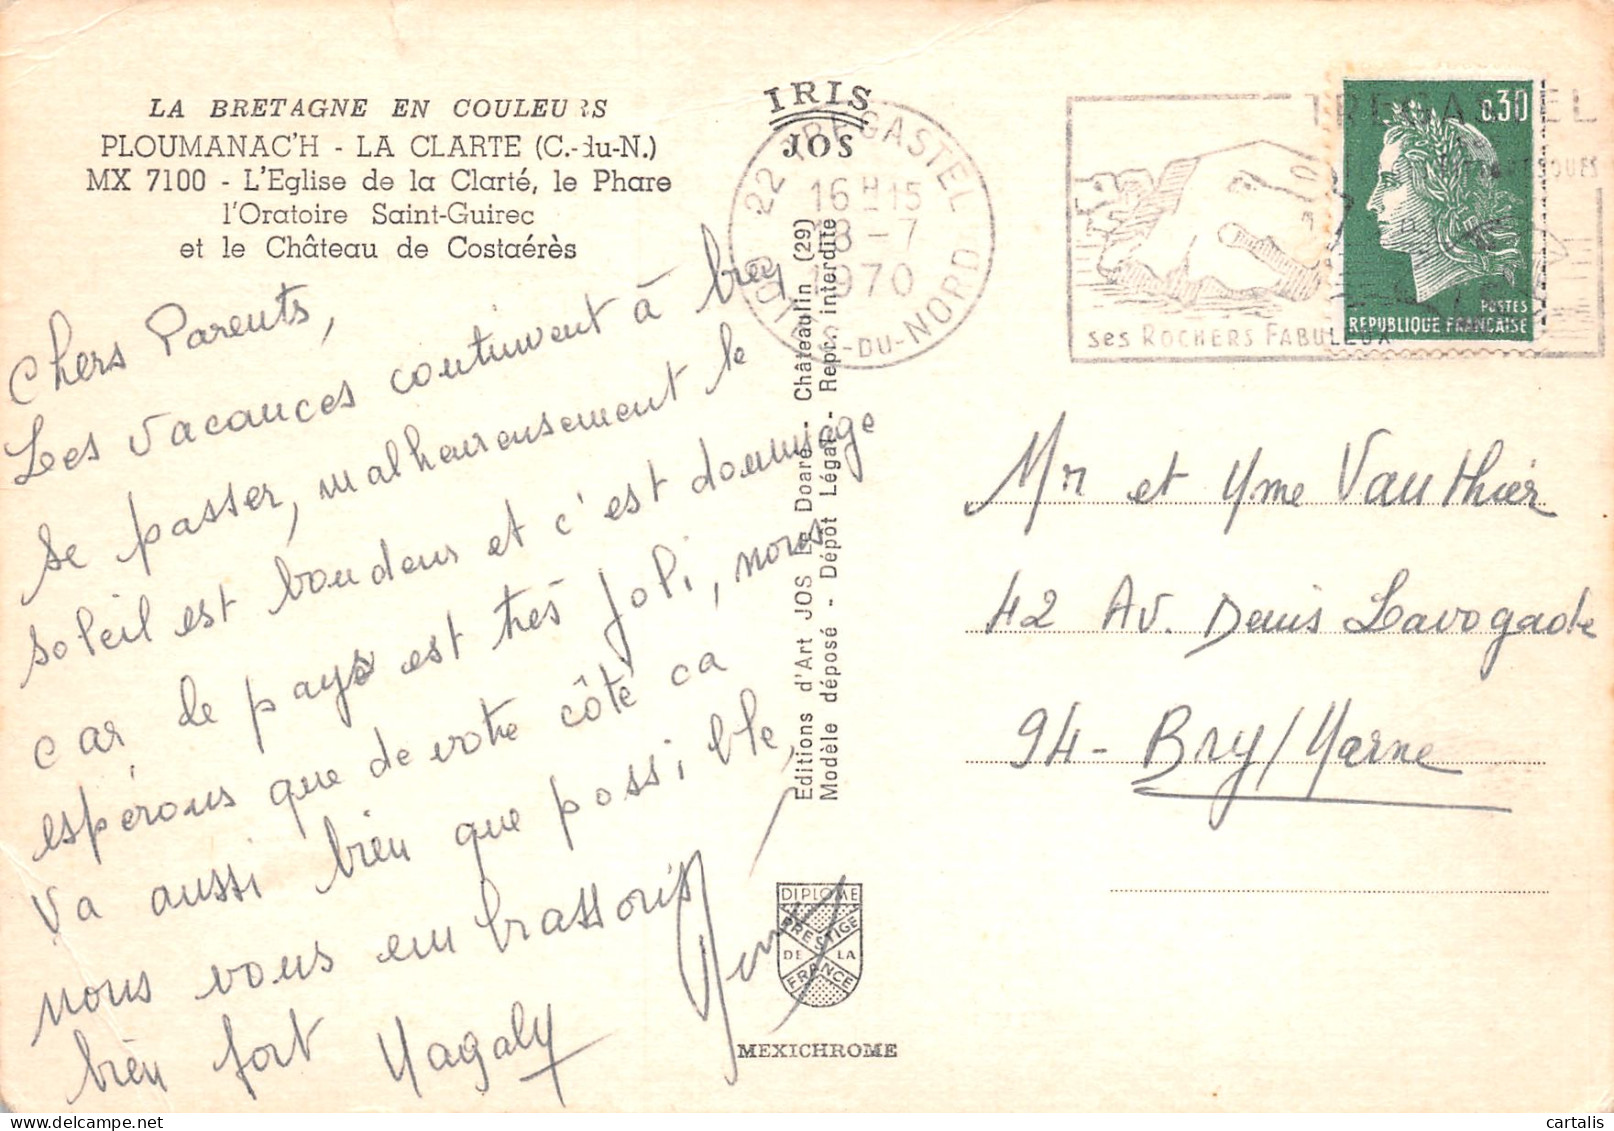 LA BRETAGNE EN COULEURS
PLOUMANAC'H - LA CLARTE (C.-du-N.)
MX 7100 - L'Eglise de la Clarté, le Phare
l'Oratoire Saint-Guirec
et le Château de Costaérès
IRIS
JOS
22 TREGASTEL
16 H 15
18 - 7
1970
COTES-DU-NORD
TREGASTEL
ses ROCHERS FABULEUX
0,30
POSTES
REPUBLIQUE FRANÇAISE
Chers Parents,
Les vacances continuent à
se passer, malheureusement le
soleil est boudeur et c'est dommage
car le pays est très joli, nous
espérons que de votre côté ca
va aussi bien que possible,
nous vous embrassons
bien fort Magaly
Editions d'Art JOS LE Doaré - Châteaulin (29)
Modèle déposé - Dépôt Légal - Repro interdite
DIPLOME
PRESTIGE
DE LA
FRANCE
MEXICHROME
Mr et Mme Vauthier
42 Av. Denis Lavogade
94 - Bry/Marne
cartalis